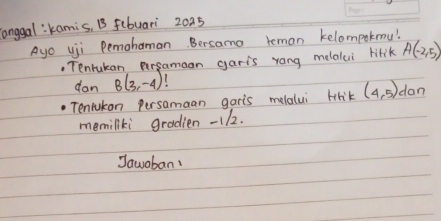 Tanggal : kamis, 13 febuari 2025
Ayo uji Pemahaman Bersama teman kelompokmu!
• Tentukan Persamaan garis yang melalui titik A(-2,5)
dan B(3,-4)!
• Tentukan Persamaan garis melalui titik (4,5) dan
memiliki gradien -1/2.
Jawaban :